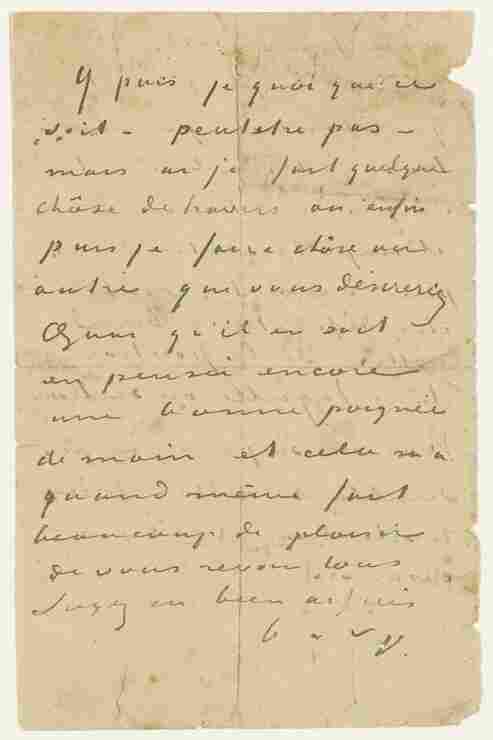 Y puis je quoi que ce
soit – peutetre pas –
mais ai je fait quelque
chôse de travers ou enfin
puis je faire chôse ou
autre que vous désireriez
Quoi qu'il en soit
en pensée encore
une bonne poignée
de main et cela m'a
quand même fait
beaucoup de plaisir
de vous revoir tous
Soyez en bien
t. à v.